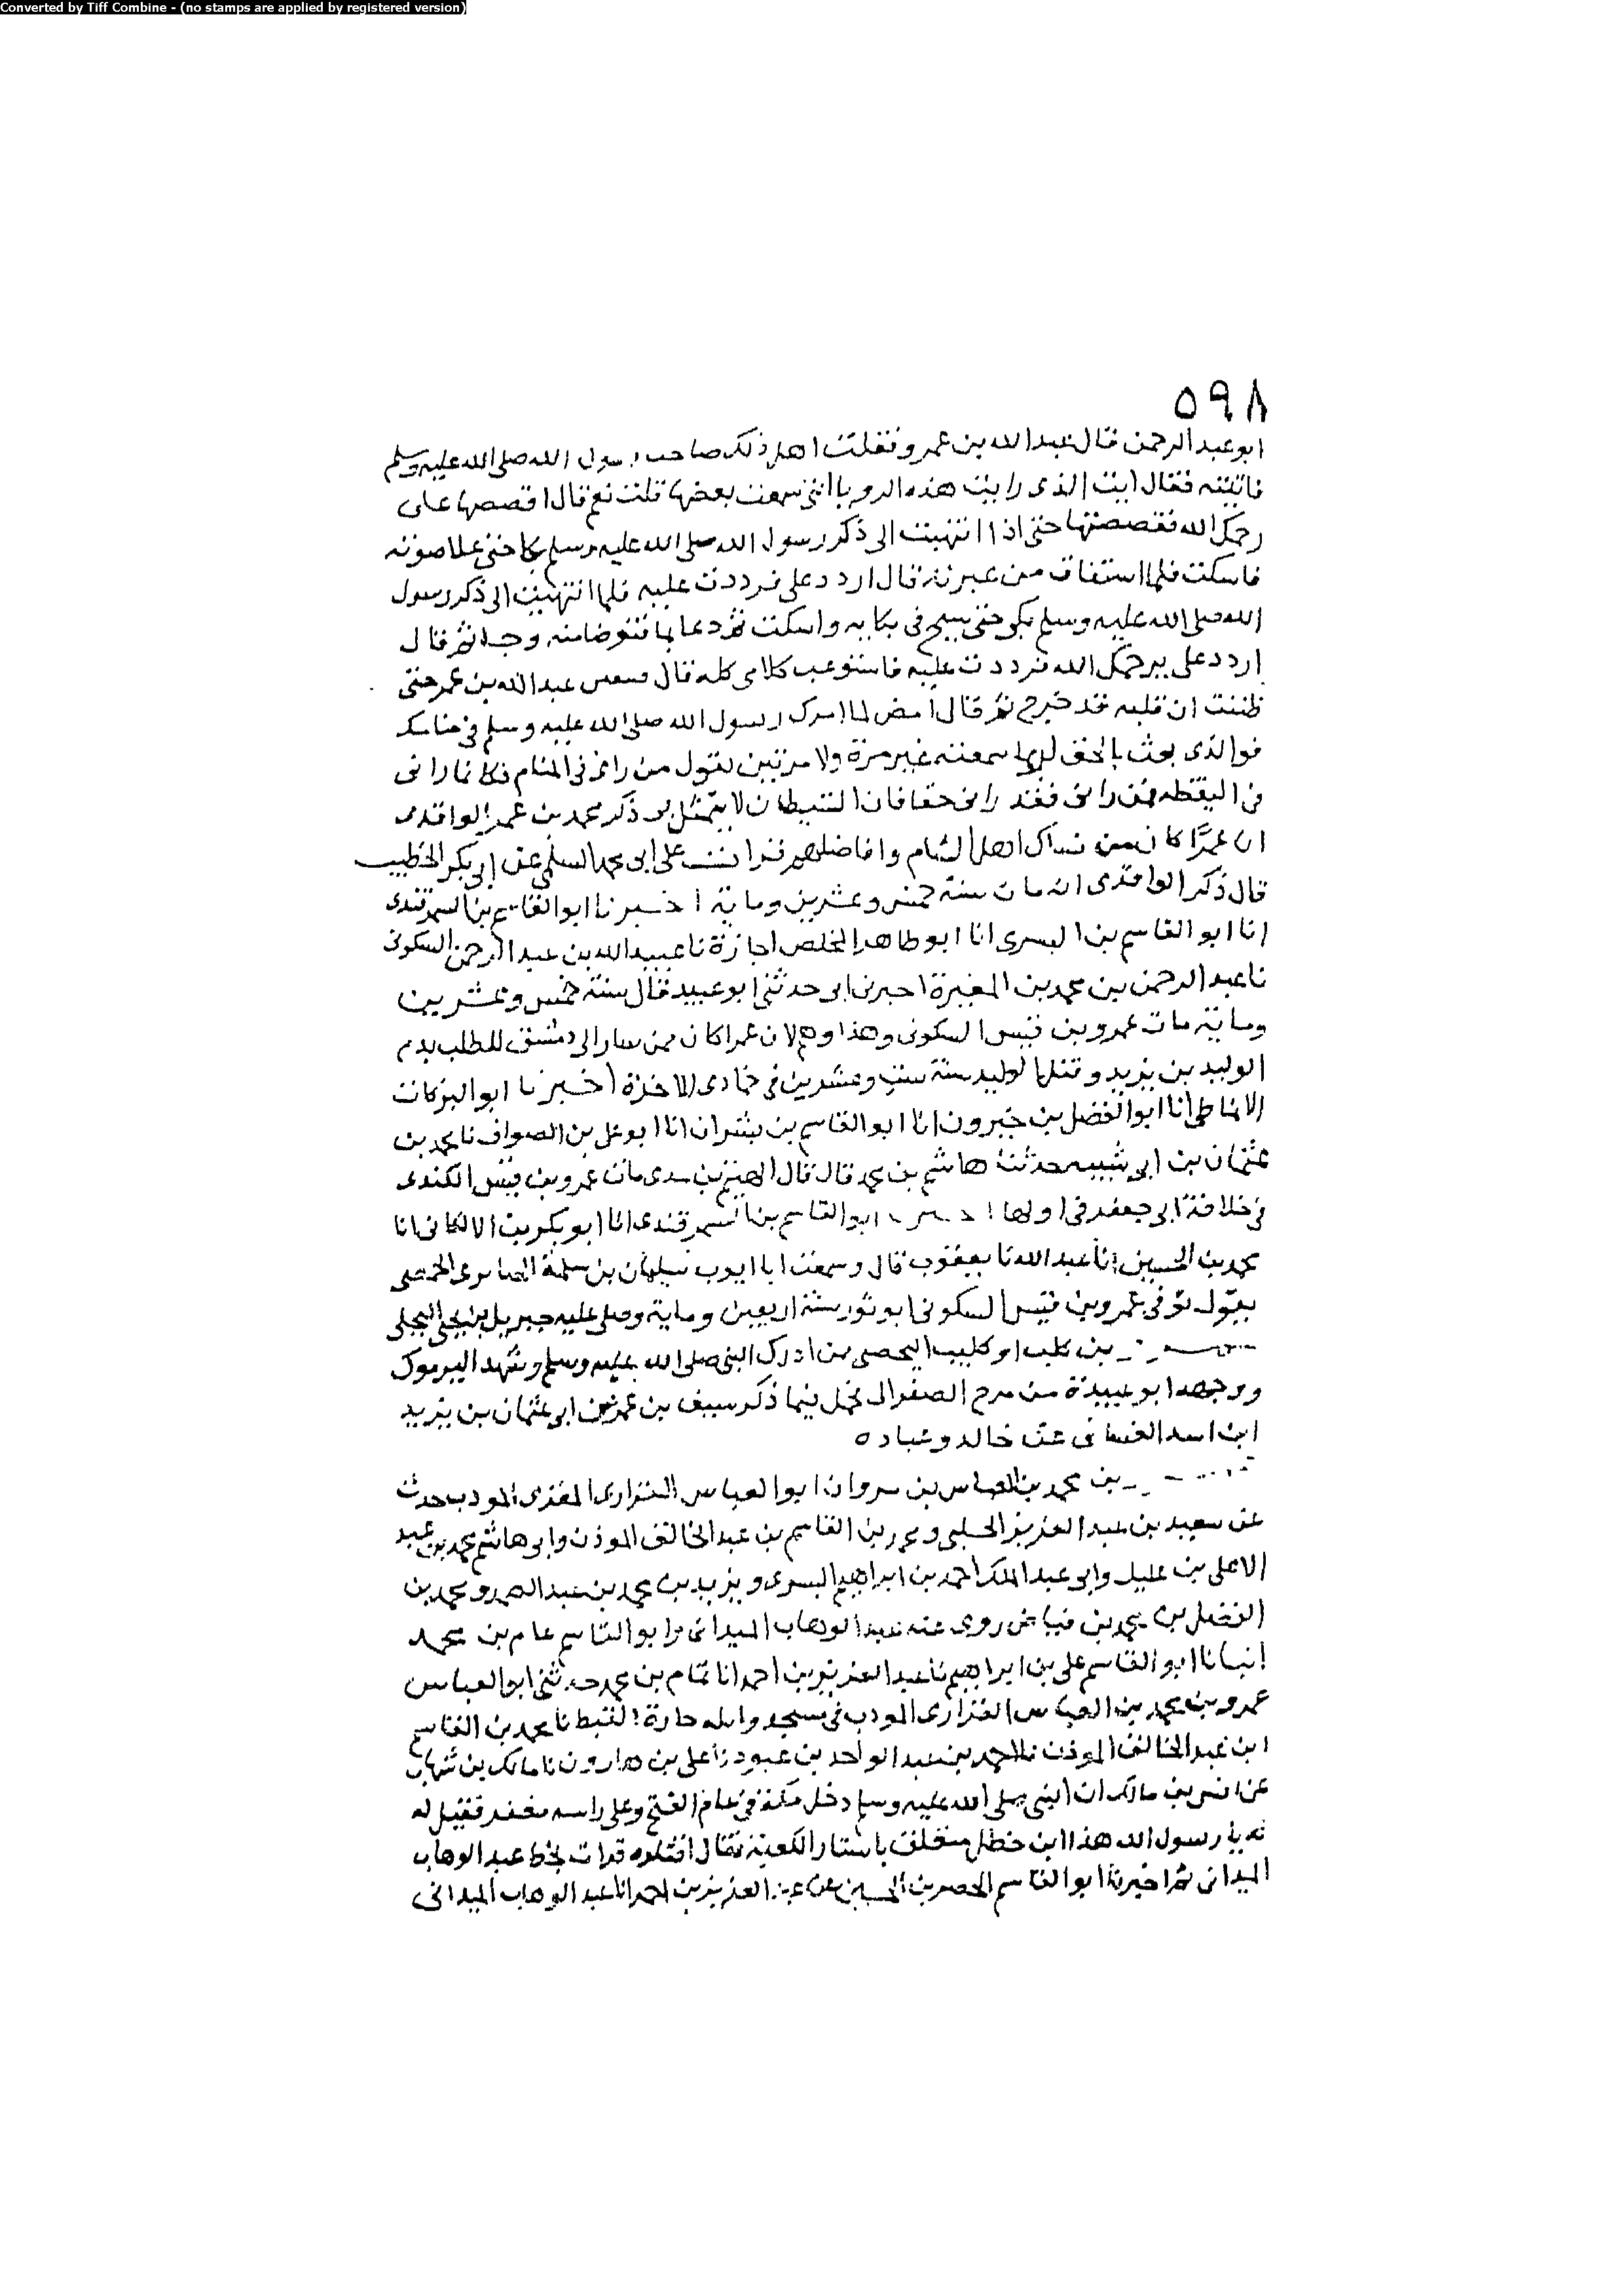 Converted by Tiff Combine - (no stamps are applied by registered version)
٥٩٨
ابو عبد الرحمن قال عبد الله بن عمرو فقلت اهل ذلك صاحب رسول الله صلى الله عليه وسلم
فاتيته فقال انت الذى رايت هذه الرويا التى سمعت بعضها قلت نعم قال اقصصها على
رحمك الله فقصصتها حتى اذا انتهيت الى ذكر رسول الله صلى الله عليه وسلم بكا حتى علا صوته
فاسكت فلما استفاق من عبرته قال اردد على فرددت عليه فلما انتهيت الى ذكر رسول
الله صلى الله عليه وسلم بكى حتى نسيح فى بكايه واسكت ثم دعا بما فتوضا منه وجد ثم قال
اردد على يرحمك الله فرددت عليه فاستوعب كلامى كله قال عبد الله بن عمر حتى
ظننت ان قلبه قد خرج ثم قال امض لما امرك رسول الله صلى الله عليه وسلم فى منامك
فوالذى بعث بالحق لربما سمعته غير مرة ولا مرتين يقول من رانى فى المنام فكانما رانى
فى اليقظه فمن رانى فقد رانى حقا فان الشيطان لا يتمثل بى ذكر محمد بن عمر الواقدى
ان عمرًا كان من نساك اهل الشام وافاضلهم قرات على ابى محمد السلمى عن ابى بكر الخطيب
قال ذكر الواقدى انه مات سنة خمس وعشرين وماية اخبرنا ابو القاسم بن السمرقندى
انا ابو القاسم بن البسرى انا ابو طاهر المخلص اجازة نا عبيد الله بن عبد الرحمن السكونى
نا عبد الرحمن بن محمد بن المغيرة اخبرنى ابى حدثنى ابو عبيد قال سنة خمس وعشرين
وماية مات عمرو بن قيس السكونى وهذا وهم لان عمرا كان ممن سار الى دمشق للطلب بدم
الوليد بن يزيد وقتل الوليد سنة ست وعشرين فى جمادى الاخرة اخبرنا ابو البركات
الانماطى انا ابو الفضل بن خيرون انا ابو القاسم بن بشران انا ابو على بن الصواف نا محمد بن
عثمان بن ابى شيبه حدثنا هاشم بن محمد قال قال الهيثم بن عدى مات عمرو بن قيس الكندى
فى خلافة ابى جعفر فى اولها اخبرنا ابو القاسم بن السمرقندى انا ابو بكر بن الالكانى انا
محمد بن الحسين انا عبد الله نا يعقوب قال وسمعت ابا ايوب سليمان بن سلمة الحمصى
يقول توفى عمرو بن قيس السكونى ابو ثور سنة اربعين وماية وصلى عليه جبريل بن يحيى البجلى
بن كليب او كليب اليحصبى من ادرك النبى صلى الله عليه وسلم وشهد اليرموك
ووجهه ابو عبيدة من مرج الصفر الى فحل فيما ذكر سيف بن عمر عن ابى عثمان بن يزيد
ابن اسد الغسانى عن خالد وعباده
بن محمد بن العباس بن مروان ابو العباس الفزارى المقرى المودب حدث
عن سعيد بن عبد العزيز الحلبى ومحمد بن القاسم بن عبد الخالق الموذن وابى هاشم محمد بن عبد
الاعلى بن عليل وابى عبد الملك احمد بن ابراهيم البسرى ويزيد بن محمد بن عبد الصمد ومحمد بن
الفضل بن محمد بن فياض روى عنه عبد الوهاب الميدانى وابو القاسم تمام بن محمد
انبانا ابو القاسم على بن ابراهيم نا عبد العزيز بن احمد انا تمام بن محمد حدثنى ابو العباس
عمرو بن محمد بن العباس الفزارى المودب فى مسجد واثله حارة القبط نا محمد بن القاسم
ابن عبد الخالق الموذن نا احمد بن عبد الواحد بن عبود نا على بن هارون نا مالك بن شهاب
عن انس بن مالك ان النبى صلى الله عليه وسلم دخل مكة فى عام الفتح وعلى راسه مغفر فقيل له
يا رسول الله هذا ابن خطل متعلق باستار الكعبة فقال اقتلوه قرات بخط عبد الوهاب
الميدانى ثم اخبرنا ابو القاسم الخضر بن الحسين عن عبد العزيز بن احمد انا عبد الوهاب الميدانى